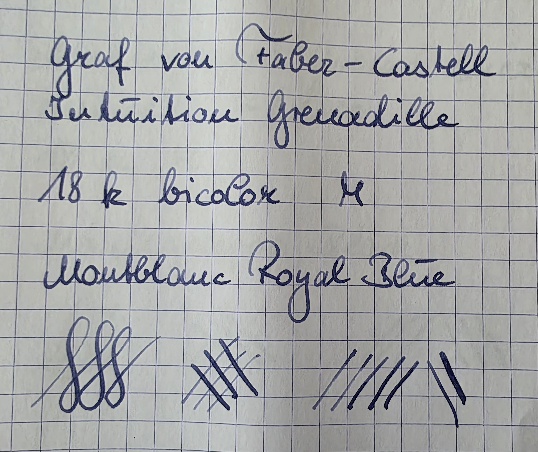 Graf von Faber-Castell
Intuition Grenadille
18 k bicolor M
Montblanc Royal Blue